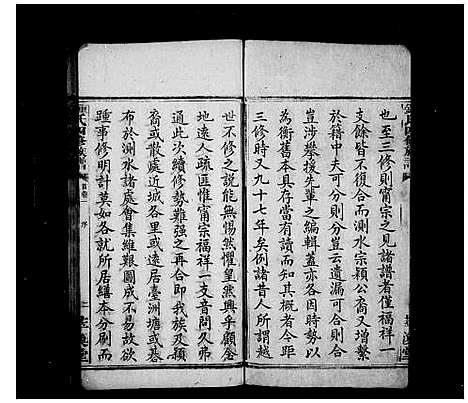 也至三修則甯宗之見諸譜者僅福祥一
支餘皆不復合而測水宗穎公裔又增繫
於籍中夫可分則分豈云遺漏可合則合
豈涉攀援先輩之編輯蓋亦各因時勢以
為衡舊本具存當有讀而知其概者今距
三修時又九十七年矣例諸昔人所謂越
世不修之說能無惕然懼皇然興乎顧登
地遠人疏匪惟甯宗福祥一支音問久弗
通此次續修勢難强之再合即我族及穎
裔或散處近城各里或遠居臺洲塘或碁
布於測水諸處會集維艱圖成不易故欲
踵事修明計莫如各就所居繕本分刷而
氏四修族譜
序